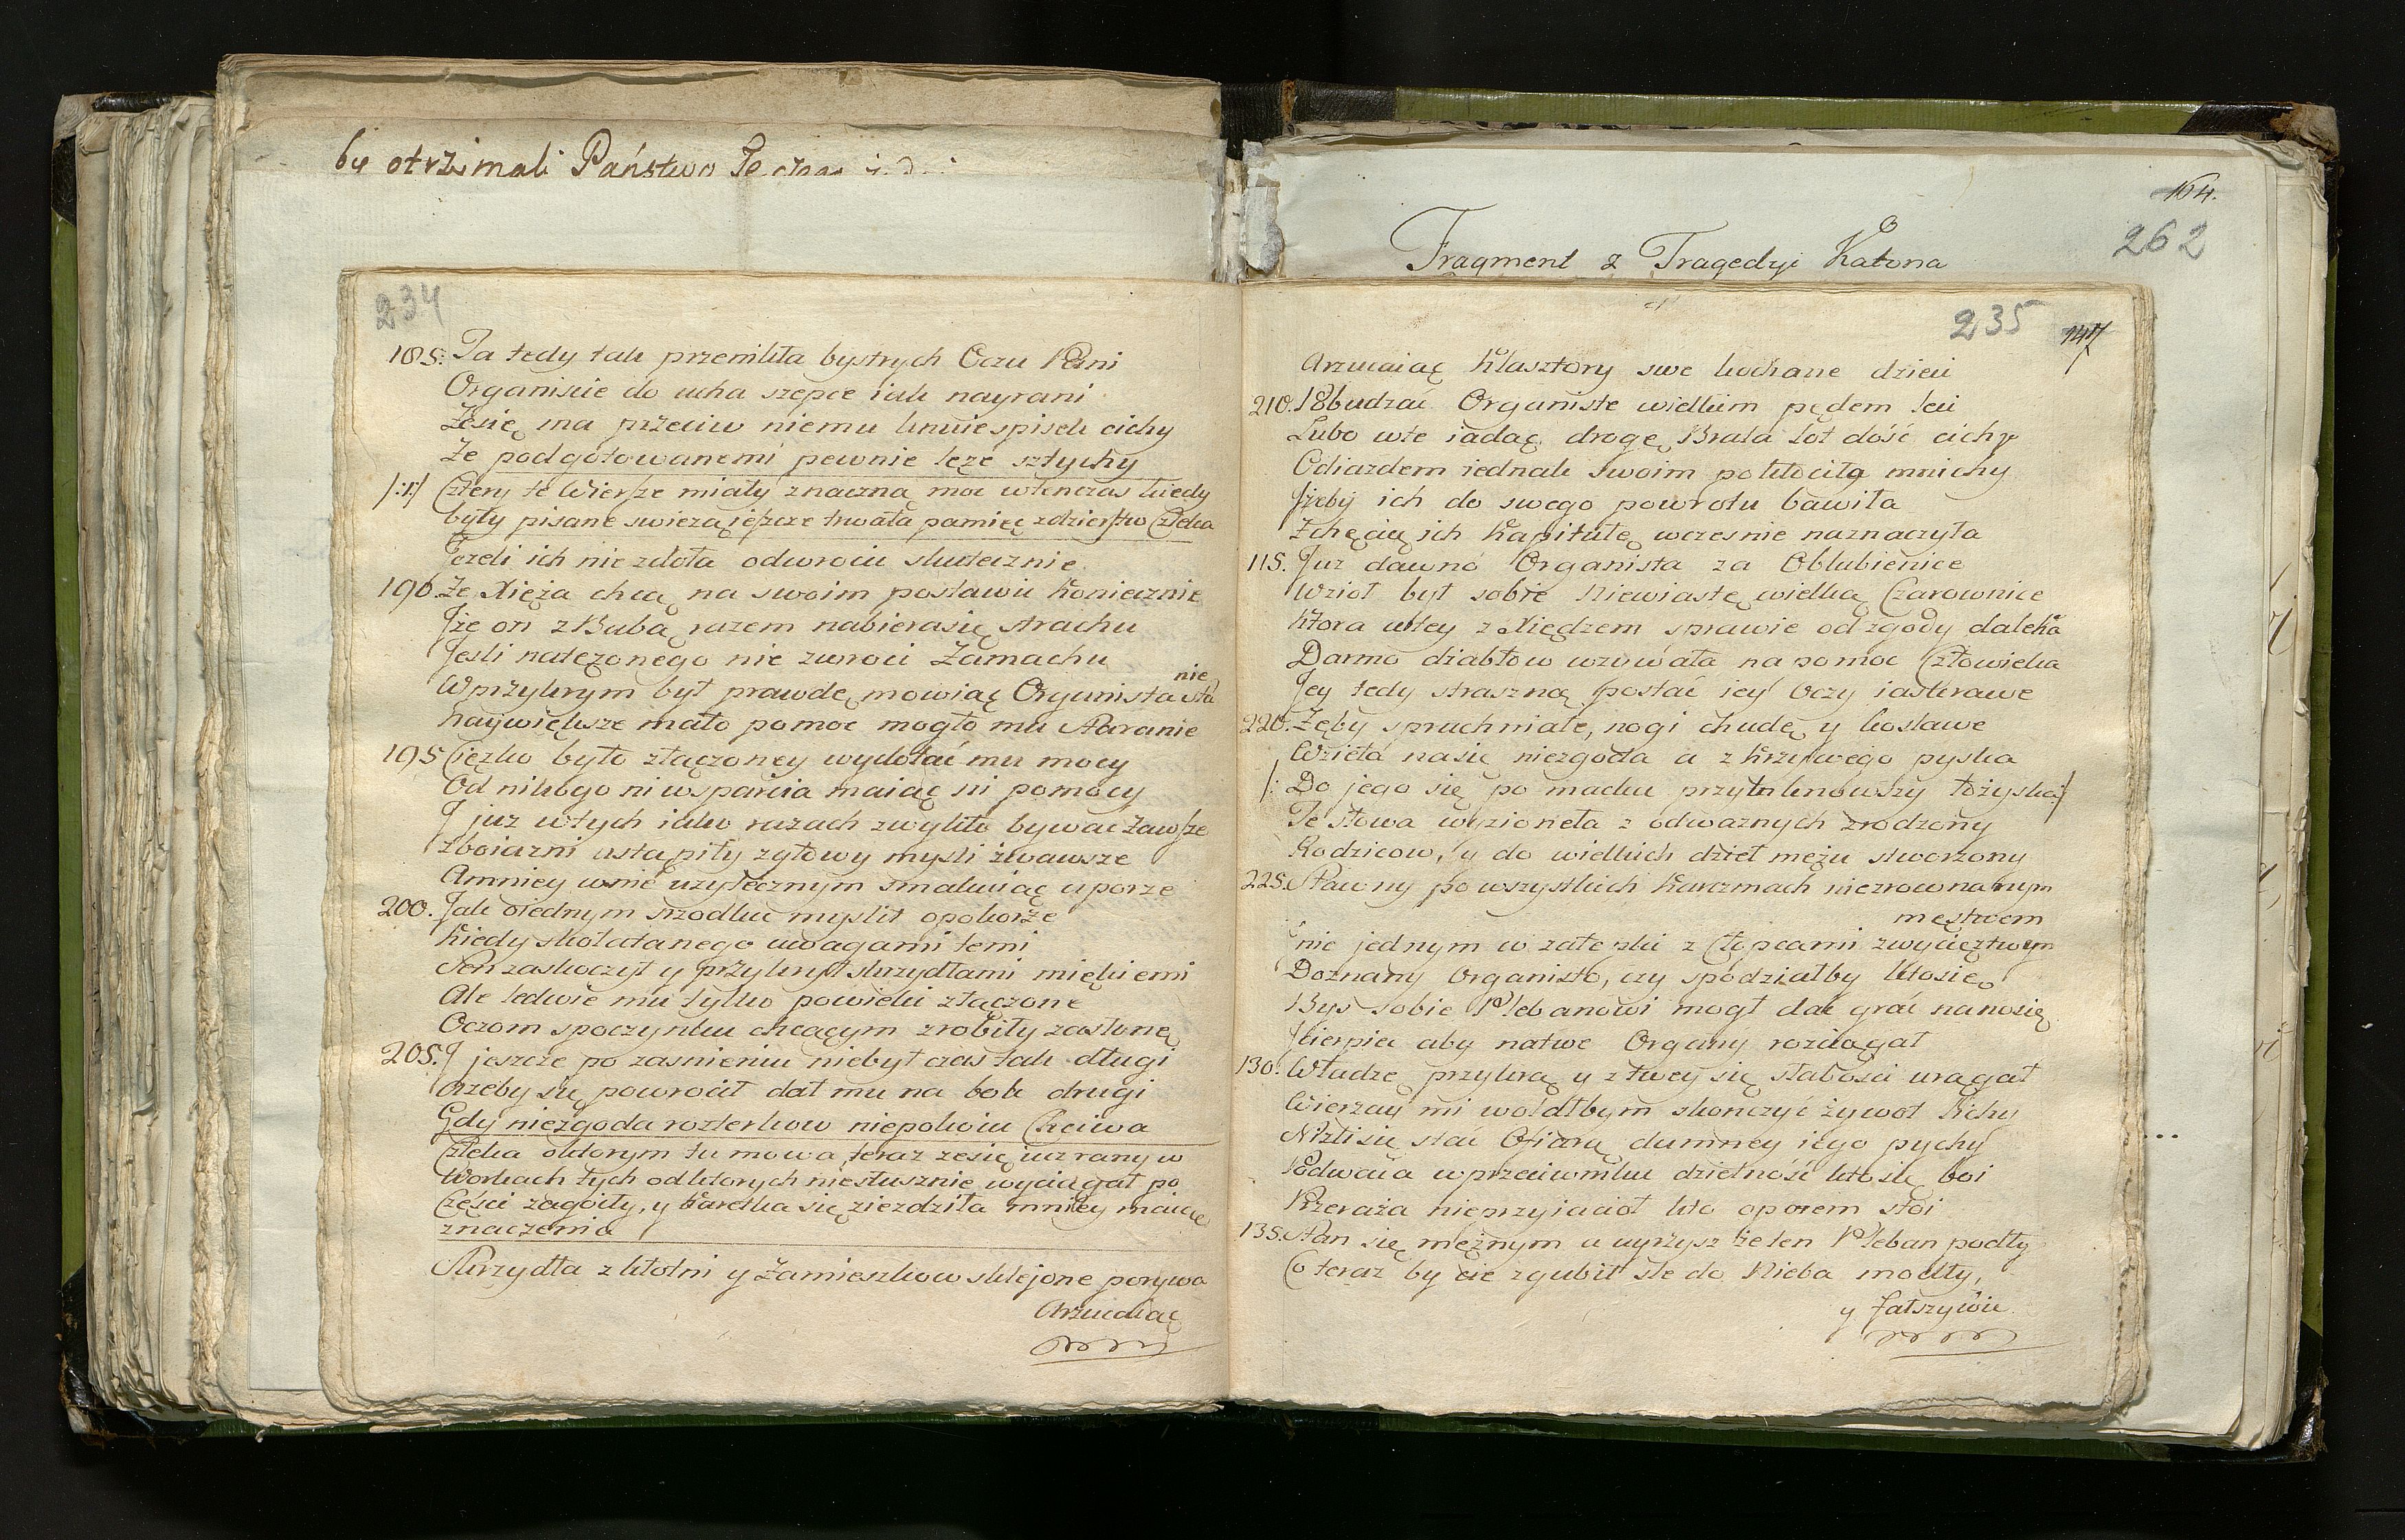 by otrzimali Państwo
234
185. Ta tedy tak przenikła bystrych Oczu Pani
Organiscie do ucha szepce iak nayrani
Zesię ma przeciw niemu knuie spisek cichy
Że podgotowanemi pewnie leze sztychy
/:1:/ Cztery te Wiersze miały znaczną moc wtenczas kiedy
były pisane swieza ieszcze trwała pamięc zdzierstw Człeka
Jezeli ich nie zdoła odwrocic skutecznie
190. Ze Xięża chcą na swoim postawic koniecznie
Jże on z Babą razem nabierasię strachu
Jesli natężonego nie zwroci Zamachu
W przykrym był prawdę mowiąc Organista sta
nie
naywiększe mało pomoc mogło mu Staranie
195 Cięzko było złączoney wydołać mu mocy
Od nikogo ni wsparcia maiąc ni pomocy
J juz wtych iako razach zwykło bywac zawsze
zboiazni ustąpiły zgłowy mysli żwawsze
Amniey wnie uzytecznym smakuiąc uporze
200. Jak oiednym srzodku myslił opokorze
Kiedy skołatanego uwagami temi
Sen zaskoczył y przykrył skrzydłami miękiemi
Ale ledwie mu tylko powieki złączone
Oczom spoczynku chcącym zrobiły zasłonę
205. J jeszcze po zasnieniu niebył czas tak długi
Azeby się powrocił dał mu na bok drugi
Gdy niezgoda rozterkow niepokoiu Chciwa
Człeka oktorym tu mowa teraz zesię iuz rany w
Workach tych odktorych niesłusznie wyciągał po
Części zagoiły, y karetka się ziezdziła mniey maią
znaczenia
Skrzydła z kłotni y Zamieszkow sklejone porywa
Arzucaiąc
164.
262
Fragment z Tragedyi Katona
235
147
Arzucaiąc Klasztory swe kochane dzieci
210. Wbudzac Organiste wielkim pędem leci
Lubo wte iadąc drogę Brała lot dość cichy
Odiazdem iednak swoim pokłociła mnichy
Jżeby ich do swego powrotu bawiła
Zchęcią ich Kapitułę wczesnie naznaczyła
115. Juz dawno Organista za Oblubienice
Wzioł był sobie Niewiastę wielką Czarownice
Ktora wtey z Xiędzem sprawie od zgody daleka
Darmo diabłow wzywała na pomoc Człowieka
Jey tedy straszną postać iey Oczy iaskrawe
220. Zęby spruchniałe, nogi chudę y kosławe
Wzieła nasię niezgoda a z krzywego pyska
/: Do jego się po macku przytknowszy łożyska :/
Te słowa wyzioneła z odwaznych zrodzony
Rodzicow, y do wielkich dzieł meżu stworzony
225. Sławny po wszystkich Karczmach niezrownanym
męstwem
nie jednym w zatedzki z Chłopcami zwycięztwem
Doznany Organisto, czy spodziałby ktosię
Bys sobie Plebanowi mogł dac grać nanosię
Jcierpiec aby natwe Organy roziągał
130. Władze przykrą y z twey się słabosci urągał
Wierzay mi wolałbym skonczyć żywot lichy
Nizli się stać Ofiarą dumney iego pychy
Podwaia wprzeciwniku dzielność kto się boi
Przeraza nieprzyiaciot kto oporem stoi
135. Stan się mężnym a uyrzysz że ten Pleban podły
Co teraz by cie zgubił sle do Nieba modły,
y fałszywie